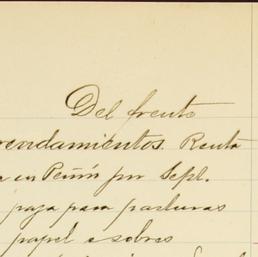 Del frente
rendamientos. Renta
en Peñón por Sept.
paja para pasturas
papel e sobres